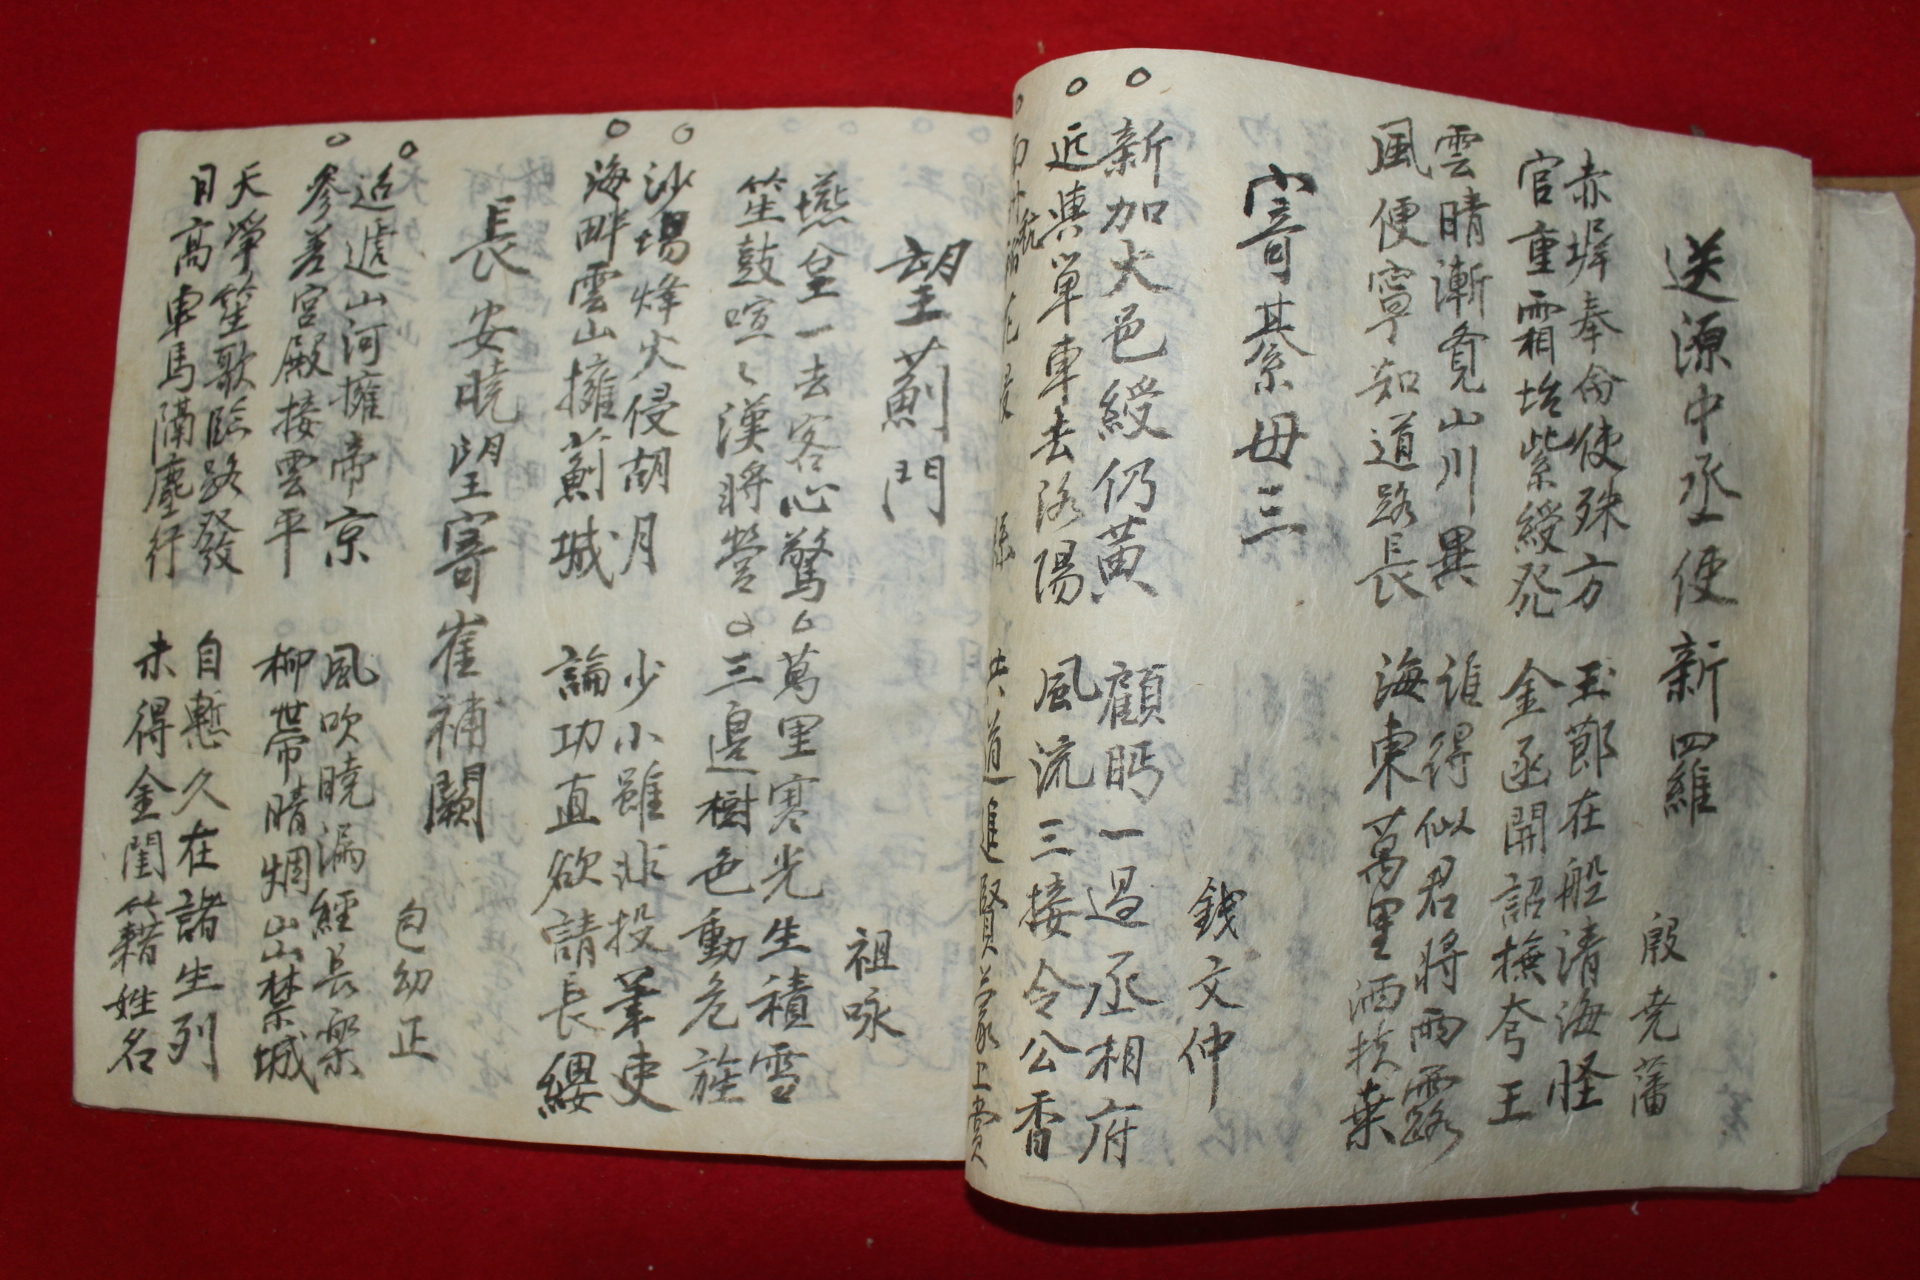 送源中丞使新羅
殷尭藩
赤墀奉命使殊方 玉節在船清海怪
官重霜坮紫綬光 金函開詔撫夸王
雲晴漸覓山川異 誰得似君將雨露
風便寧知道路長 海東萬里洒扶桒
寄綦毋三
錢文仲
新加大邑綬仍黄 顧眄一過丞相府
近與單車去洛陽 風流三接令公香
花縣 共道進賢蒙上賞
望薊門
祖咏
燕臺一去客心驚 萬里寒光生積雪
笙鼓喧〻漢將營 三邊樹色動危旌
沙場烽火侵胡月 少小雖非投筆吏
海畔雲山擁薊城 論功直欲請長纓
長安曉望寄崔補闕
包幼正
迢遞山河擁帝京 風吹曉漏經長樂
參差宮殿接雲平 柳帶晴烟出禁城
天淨笙歌臨路發 自慙久在諸生列
日高車馬隔塵行 未得金閨籍姓名